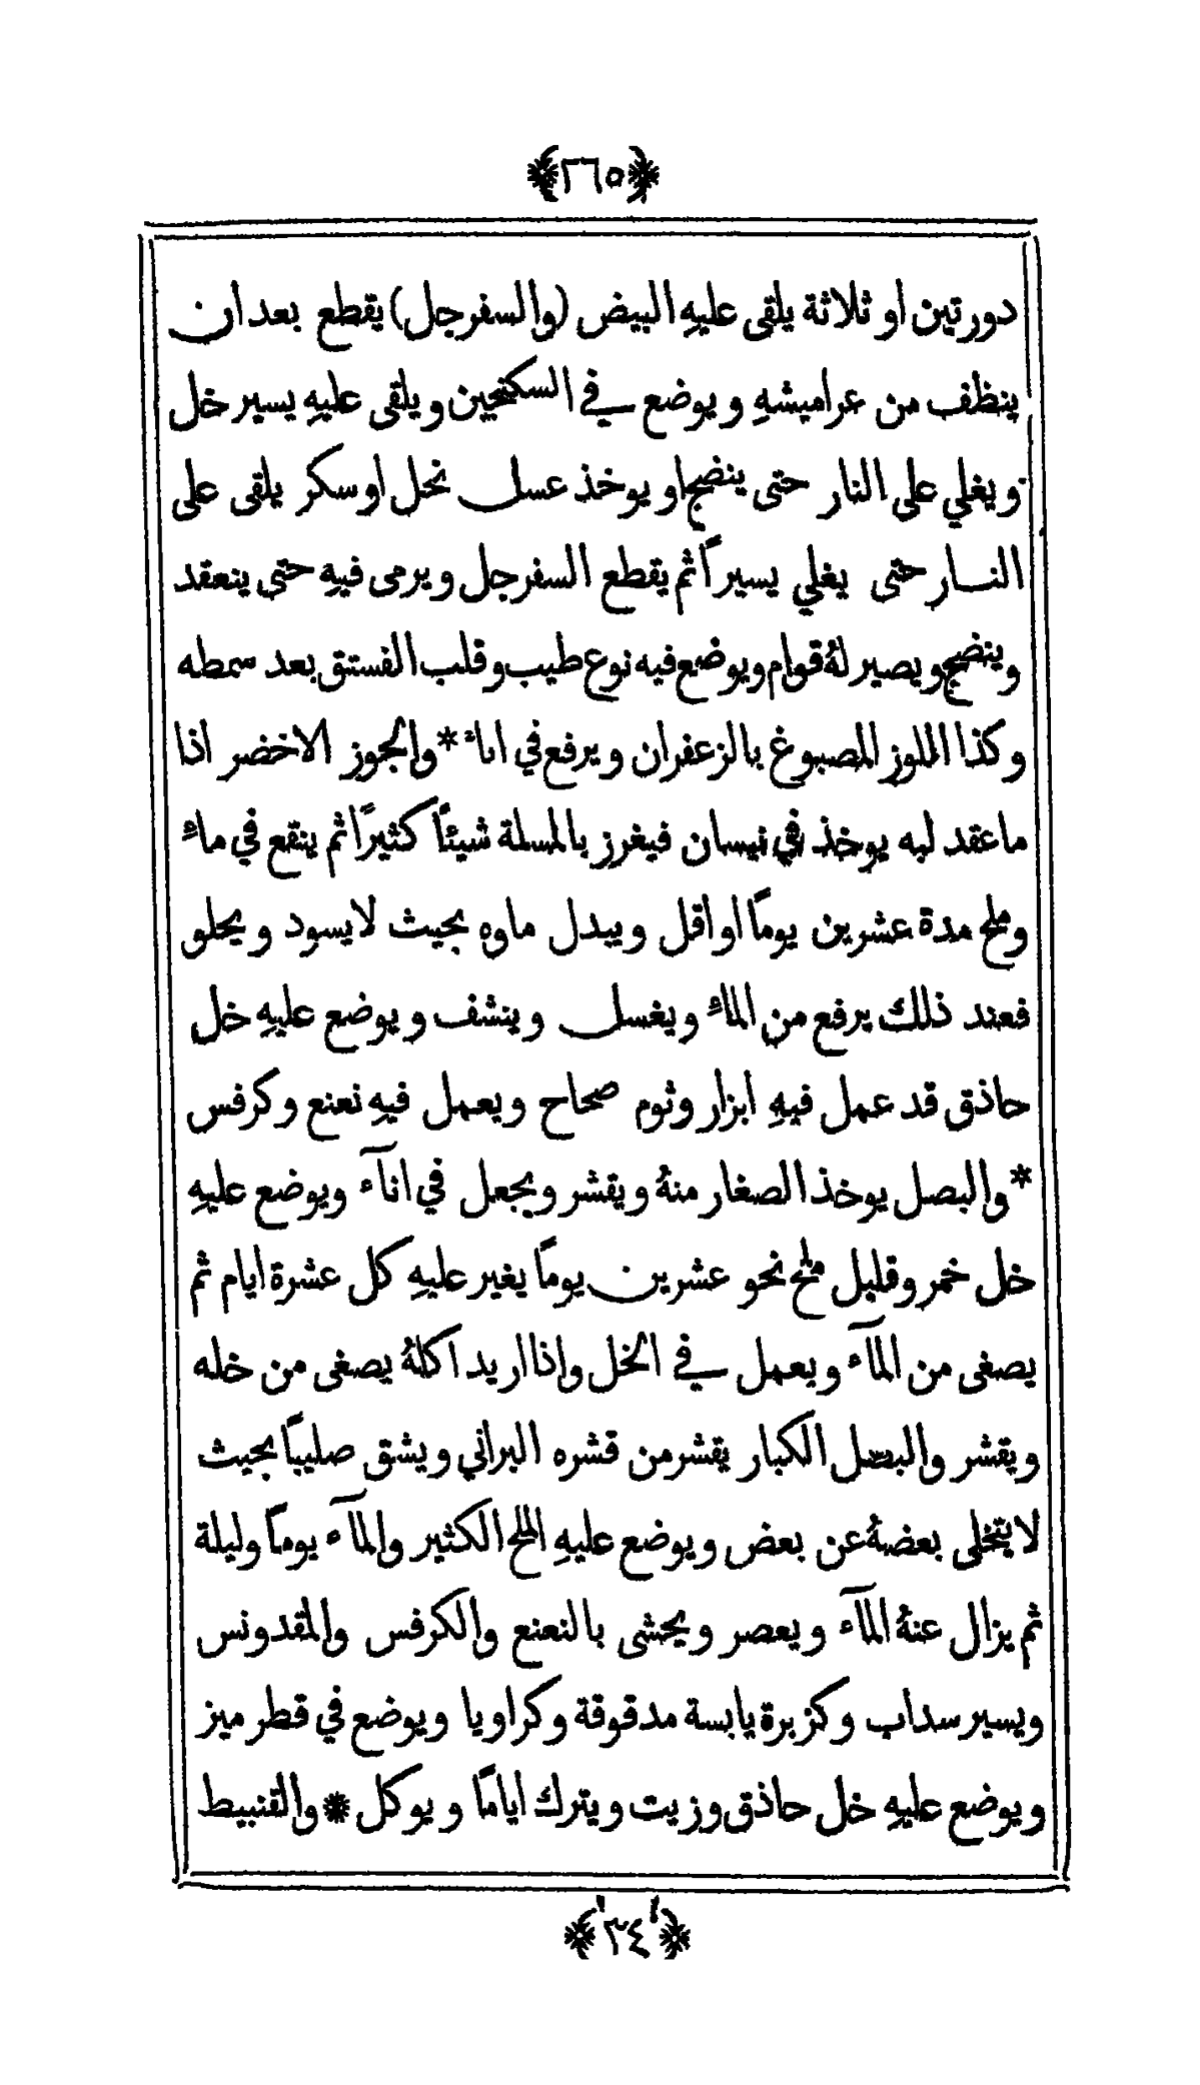 ﴿٢٦٥﴾
دورتين او ثلاثة يلقى عليهِ البيض (والسفرجل) يقطع بعد ان
ينظف من عراميشهِ ويوضع في السكنجبين ويلقى عليهِ يسير خل
ويغلي على النار حتى ينضج او يوخذ عسل نحل او سكر يلقى على
النار حتى يغلي يسيراً ثم يقطع السفرجل ويرمى فيهِ حتى ينعقد
وينضج ويصير لهُ قوام ويوضع فيه نوع طيب وقلب الفستق بعد سمطه
وكذا اللوز المصبوغ بالزعفران ويرفع في اناء * والجوز الاخضر اذا
ما عقد لبه يوخذ في نيسان فيغرز بالمسلة شيئاً كثيرًا ثم ينقع في ماءٍ
وملح مدة عشرين يومًا او اقل ويبدل ماوه بحيث لا يسود ويحلو
فعند ذلك يرفع من الماءِ ويغسل وينشف ويوضع عليهِ خل
حاذق قد عمل فيهِ ابزار وثوم صحاح ويعمل فيهِ نعنع وكرفس
* والبصل يوخذ الصغار منهُ ويقشر ويجعل في انآء ويوضع عليهِ
خل خمر وقليل ملح نحو عشرين يومًا يغير عليهِ كل عشرة ايام ثم
يصفى من المآء ويعمل في الخل واذا اريد اكلهُ يصفى من خله
ويقشر والبصل الكبار يقشر من قشره البراني ويشق صليبًا بحيث
لا يتخلى بعضهُ عن بعض ويوضع عليهِ الملح الكثير والمآء يومًا وليلة
ثم يزال عنهُ المآء ويعصر ويحشى بالنعنع والكرفس والمقدونس
ويسير سداب وكزبرة يابسة مدقوقة وكراويا ويوضع في قطرميز
ويوضع عليهِ خل حاذق وزيت ويترك ايامًا ويوكل * والقنبيط
﴿٣٤﴾